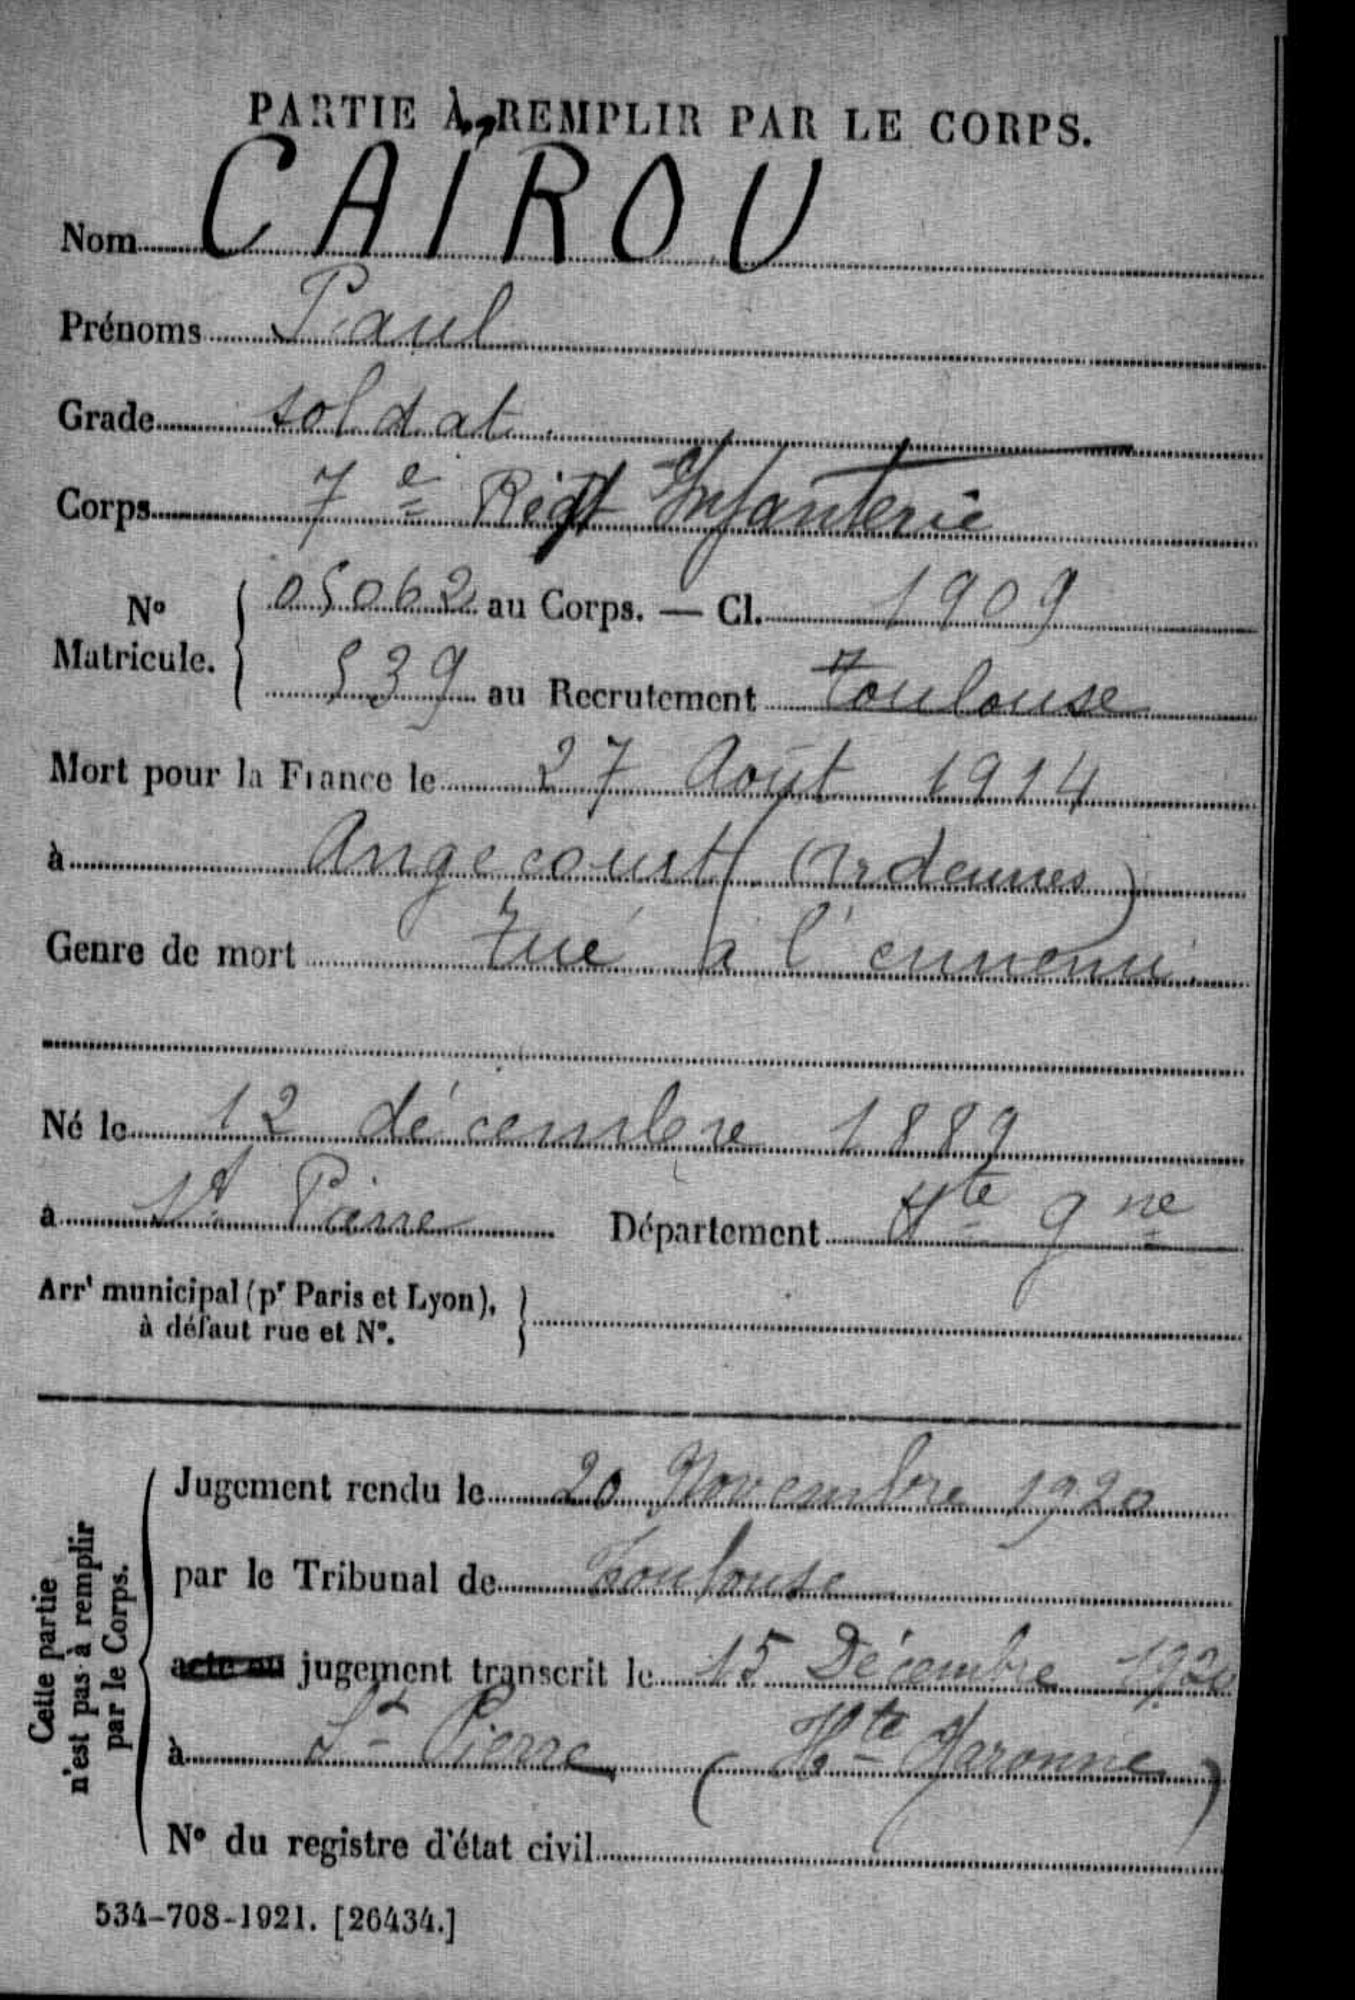 PARTIE À REMPLIR PAR LE CORPS.
Nom CAÏROU
Prénoms Paul
Grade soldat
Corps 7e Régt Infanterie
No Matricule. { 05062 au Corps. — Cl. 1909
539 au Recrutement Toulouse
Mort pour la France le 27 Août 1914
à Angecourt (Ardennes)
Genre de mort tué à l'ennemi.
Né le 12 décembre 1889
à St Pierre Département Hte Gne
Arrt municipal (pr Paris et Lyon), à défaut rue et No. }
Cette partie n'est pas à remplir par le Corps.
Jugement rendu le 20 Novembre 1920
par le Tribunal de Toulouse
acte ou jugement transcrit le 15 Décembre 1920
à St Pierre (Hte Garonne)
No du registre d'état civil
534-708-1921. [26434.]